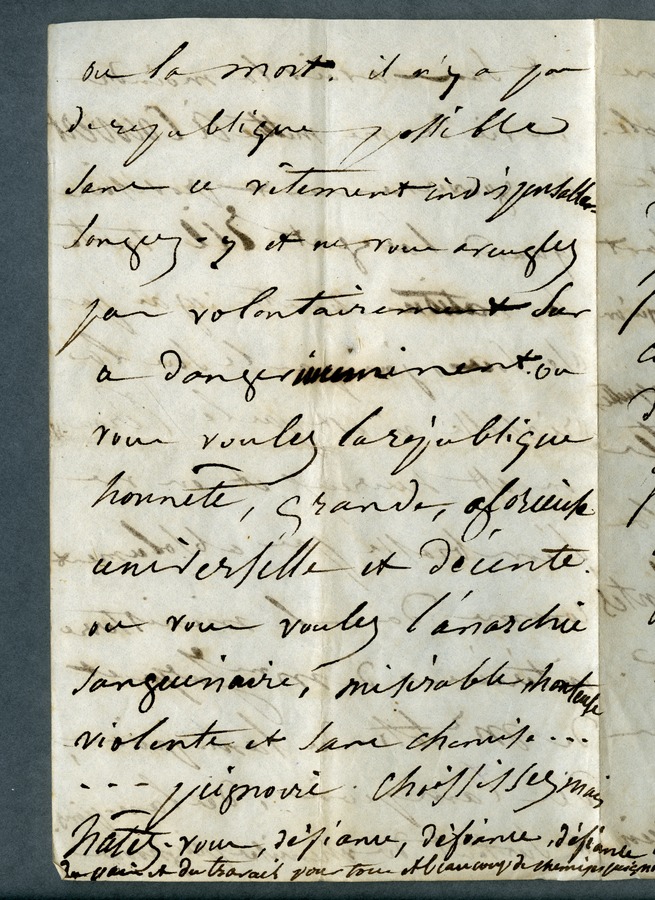 ou la mort. il n'y a pas
de republique possible
sans ce vêtement indispensable.
songez-y et ne vous aveuglez
pas volontairement sur
ce danger imminent. ou
vous voulez la république
honnête, grande, glorieuse
universelle et décente.
ou vous voulez l'anarchie
sanguinaire, misérable, honteuse
violente et sans chemise ...
- - - peignoire. choisissez, mais
hâtez-vous, défiance, défiance, défiance
du pain et du travail pour tous et beaucoup de chemises